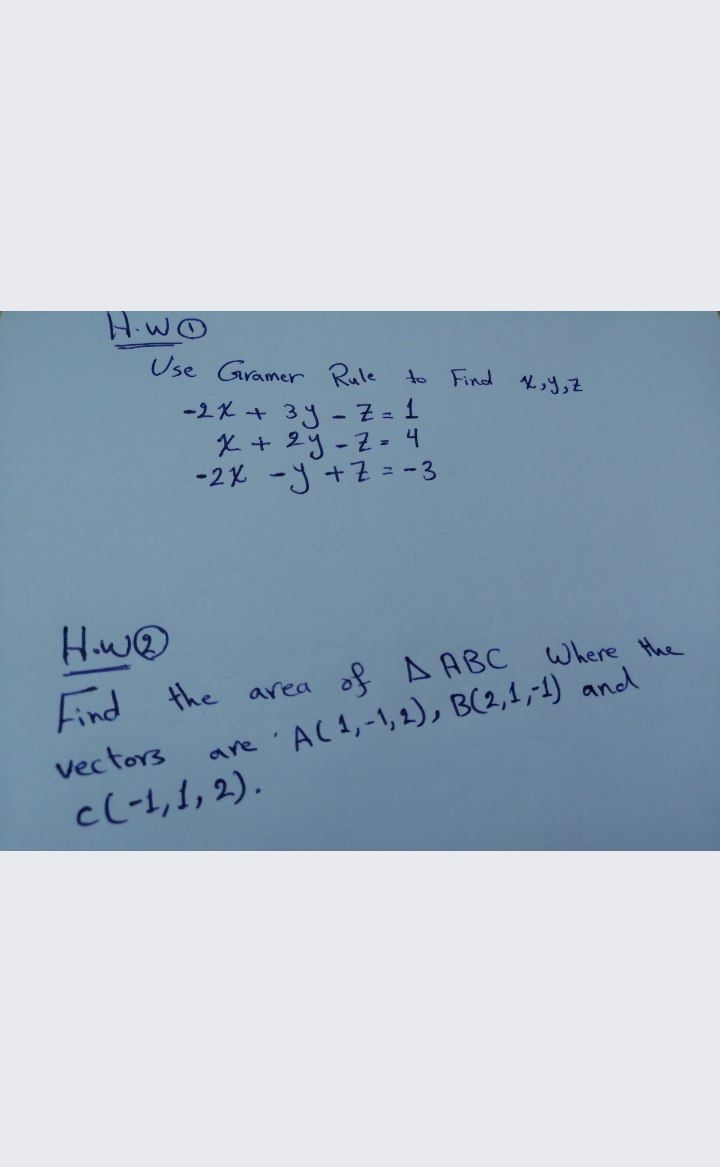 H.W①
Use Gramer Rule to Find x,y,z
-2x + 3y - z = 1
x + 2y - z = 4
-2x - y + z = -3
H.W②
Find the area of Δ ABC Where the
vectors are A(1,-1,2), B(2,1,-1) and
C(-1,1,2).